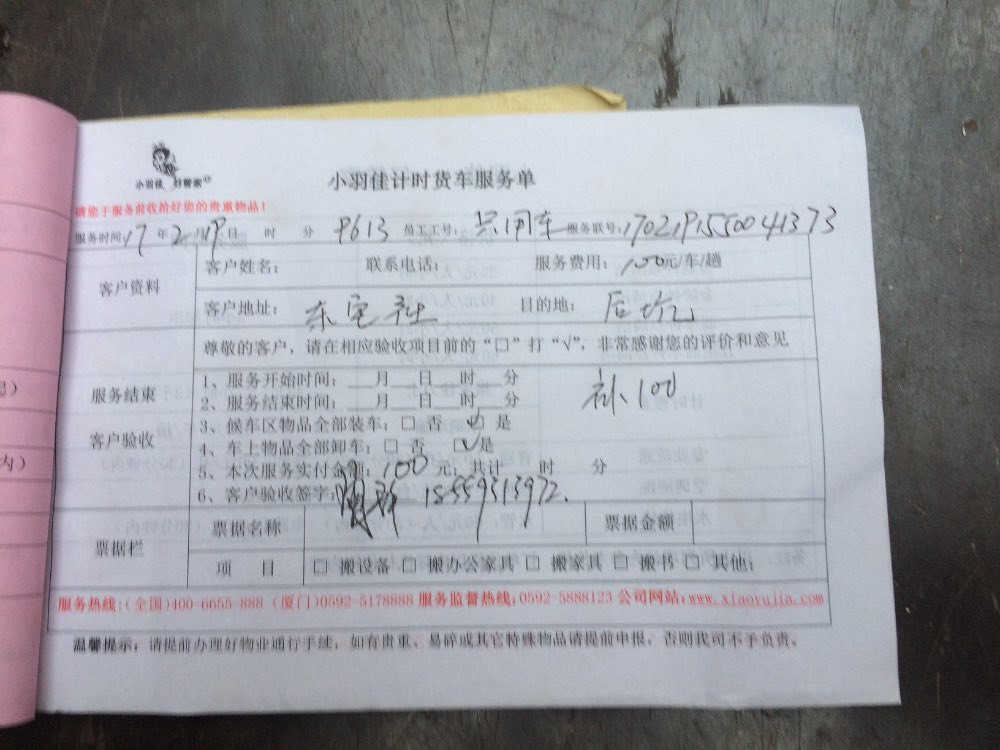 小羽佳 好管家
小羽佳计时货车服务单
请您于服务前收拾好您的贵重物品！
服务时间:17年2月19日 时 分 9613 员工工号: 只用车 服务联号:1702191550041373
客户资料
客户姓名: 联系电话: 服务费用: 100元/车/趟
客户地址: 东宅社 目的地: 后坑
尊敬的客户，请在相应验收项目前的“□”打“√”，非常感谢您的评价和意见
服务结束
客户验收
1、服务开始时间: ___月___日___时___分
2、服务结束时间: ___月___日___时___分
补100
3、候车区物品全部装车: □ 否 ☑ 是
4、车上物品全部卸车: □ 否 ☑ 是
5、本次服务实付金额: 100 元;共计 时 分
6、客户验收签字: 18559313972.
票据栏
票据名称 票据金额
项 目 □ 搬设备 □ 搬办公家具 □ 搬家具 □ 搬书 □ 其他:
服务热线:(全国)400-6655-888 (厦门)0592-5178888 服务监督热线:0592-5888123 公司网站:www.xiaoyujia.com
温馨提示: 请提前办理好物业通行手续，如有贵重、易碎或其它特殊物品请提前申报，否则我司不予负责。